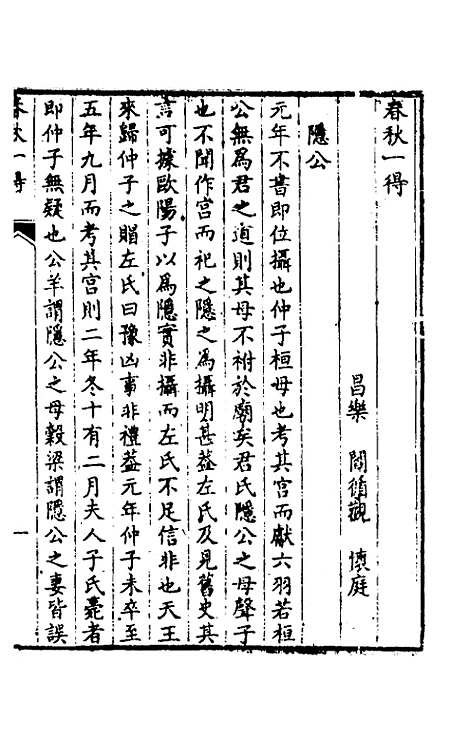 春秋一得
昌樂 閻循觀 懷庭
隱公
元年不書即位攝也仲子桓母也考其宫而獻六羽若桓
公無爲君之道則其母不祔於廟矣君氏隱公之母聲子
也不聞作宫而祀之隱之爲攝明甚葢左氏及見舊史其
言可據歐陽子以爲隱實非攝而左氏不足信非也天王
來歸仲子之賵左氏曰豫凶事非禮葢元年仲子未卒至
五年九月而考其宫則二年冬十有二月夫人子氏薨者
即仲子無疑也公羊謂隱公之母穀梁謂隱公之妻皆誤
春秋一得
一